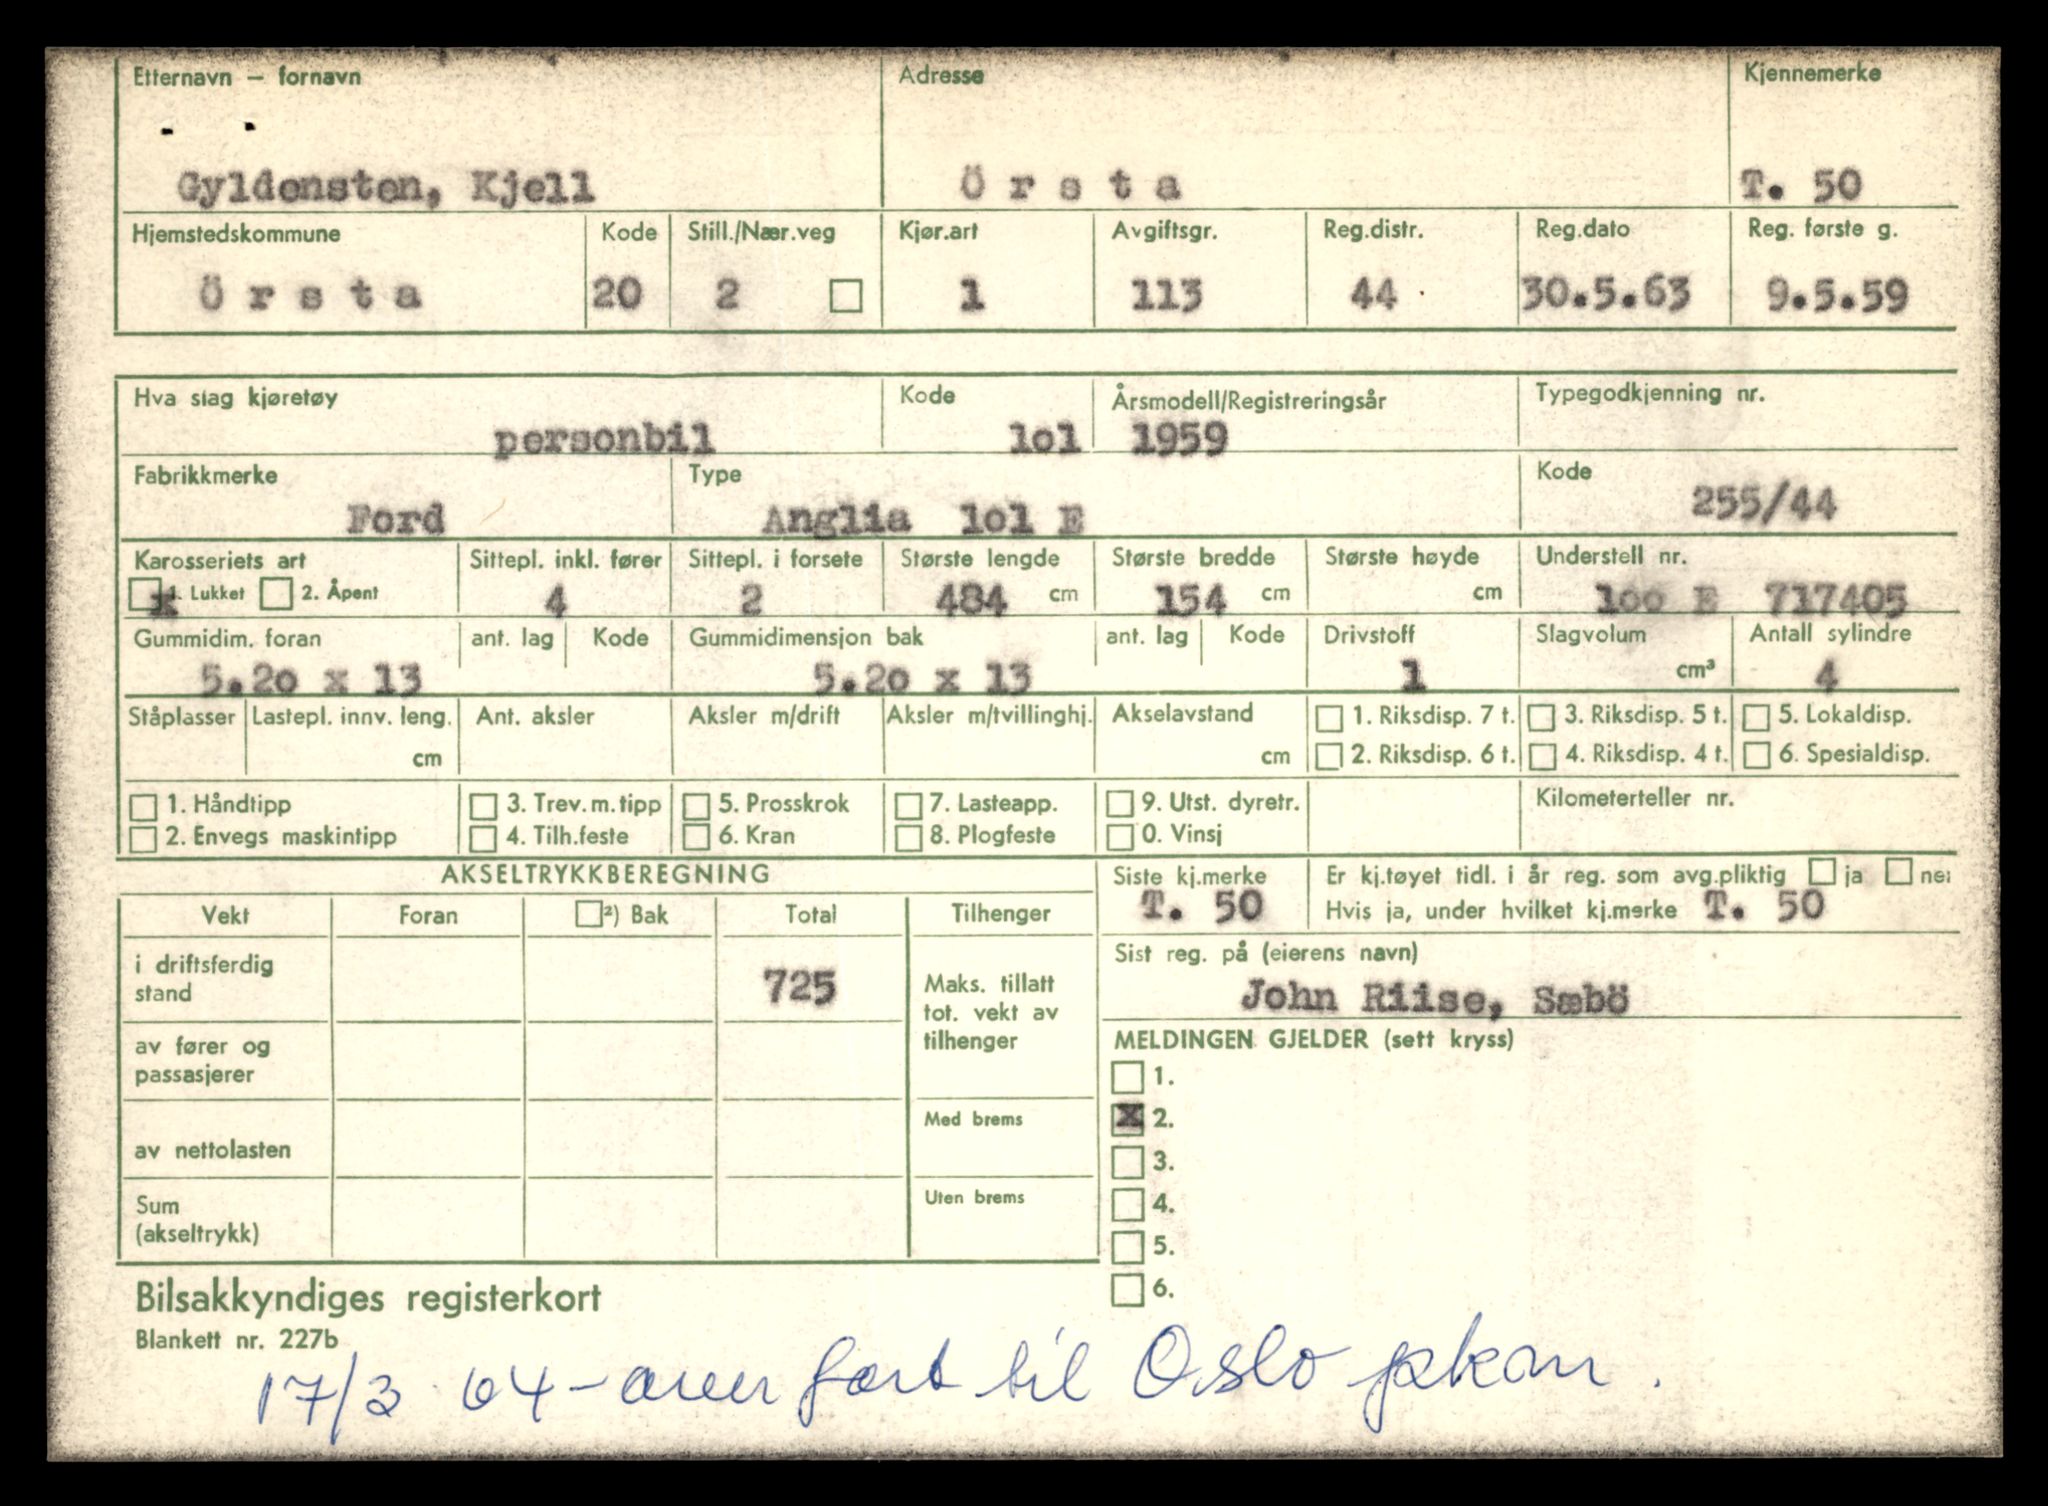 Etternavn – fornavn Adresse Kjennemerke
Gyldensten, Kjell Ö r s t a T. 50
Hjemstedskommune Kode Still./Nær.veg Kjør.art Avgiftsgr. Reg.distr. Reg.dato Reg. første g.
Ö r s t a 20 2 1 113 44 30.5.63 9.5.59
Hva slag kjøretøy Kode Årsmodell/Registreringsår Typegodkjenning nr.
personbil lol 1959
Fabrikkmerke Type Kode
Ford Anglia lol E 255/44
Karosseriets art Sittepl. inkl. fører Sittepl. i forsete Største lengde Største bredde Største høyde Understell nr.
x 1. Lukket 2. Åpent 4 2 484 cm 154 cm cm loo E 717405
Gummidim. foran ant. lag Kode Gummidimensjon bak ant. lag Kode Drivstoff Slagvolum Antall sylindre
5.20 x 13 5.20 x 13 1 cm³ 4
Ståplasser Lastepl. innv. leng. Ant. aksler Aksler m/drift Aksler m/tvillinghj. Akselavstand 1. Riksdisp. 7 t. 3. Riksdisp. 5 t. 5. Lokaldisp.
cm cm 2. Riksdisp. 6 t. 4. Riksdisp. 4 t. 6. Spesialdisp.
1. Håndtipp 3. Trev.m.tipp 5. Prosskrok 7. Lasteapp. 9. Utst. dyretr. Kilometerteller nr.
2. Envegs maskintipp 4. Tilh.feste 6. Kran 8. Plogfeste 0. Vinsj
AKSELTRYKKBEREGNING
Vekt Foran ²) Bak Total Tilhenger
i driftsferdig
stand 725
Maks. tillatt
tot. vekt av
tilhenger
av fører og
passasjerer
Med brems
av nettolasten
Uten brems
Sum
(akseltrykk)
Siste kj.merke Er kj.tøyet tidl. i år reg. som avg.pliktig ja nei
T. 50 Hvis ja, under hvilket kj.merke T. 50
Sist reg. på (eierens navn)
John Riise, Sæbö
MELDINGEN GJELDER (sett kryss)
1.
x 2.
3.
4.
5.
6.
Bilsakkyndiges registerkort
Blankett nr. 227b
17/3 64 – overført til Oslo